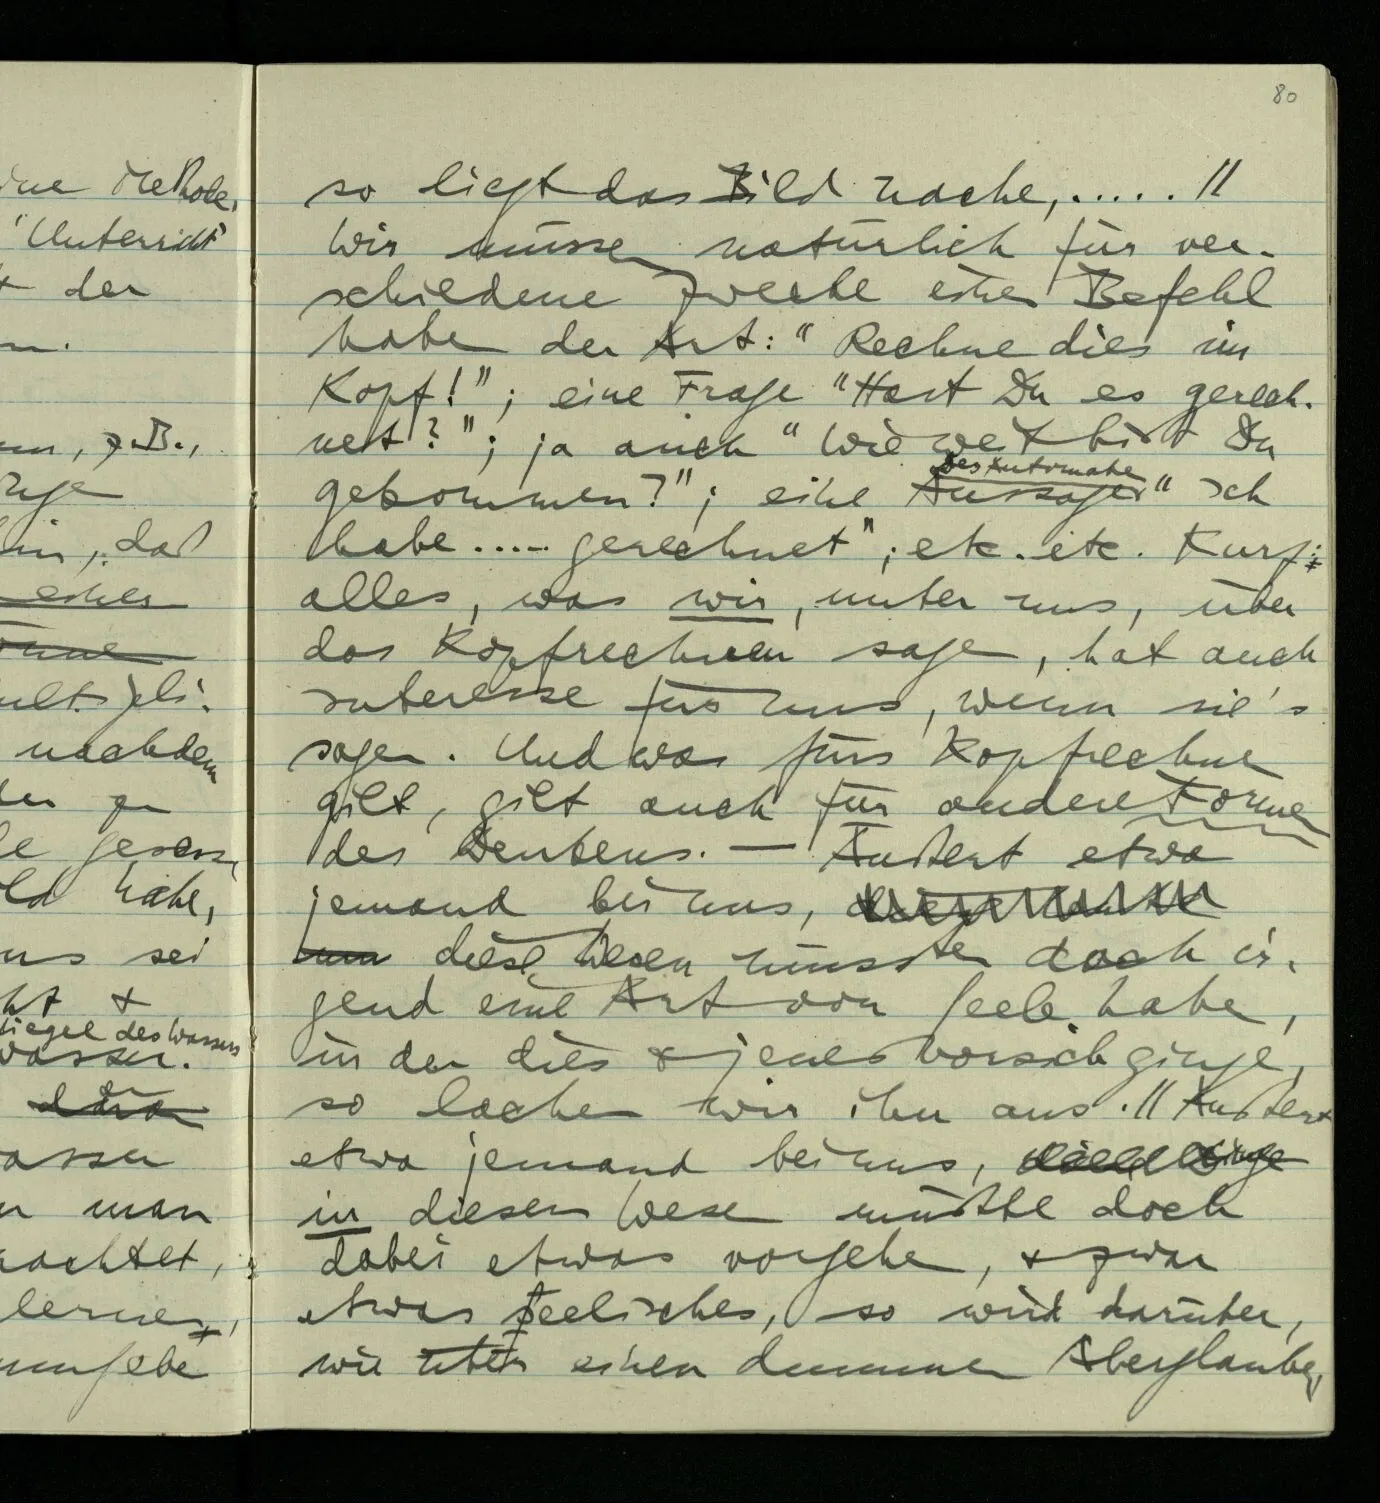 ine Methode,
"Unterricht"
der
z.B.,
daß
einer
nachdem
habe,
uns sei
&
des Wassers
Wasser.
man
lernen,
80
so liegt das Bild nahe, ..... //
Wir müssen natürlich für ver-
schiedene Zwecke einen Befehl
haben der Art: "Rechne dies im
Kopf!"; eine Frage "Hast Du es gerech-
net?"; ja auch "Wie weit bist Du
des Automaten
gekommen?"; eine Aussage "Ich
habe ..... gerechnet"; etc. etc. Kurz:
alles, was wir, unter uns, über
das Kopfrechnen sagen, hat auch
Interesse für uns, wenn sie's
sagen. Und was fürs Kopfrechnen
gilt, gilt auch für andere Formen
des Denkens. — Äußert etwa
jemand bei uns,
diese Wesen müssten doch ir-
gend eine Art von Seele haben,
in der dies & jenes vorsich ginge,
so lachen wir ihn aus. // Äußert
etwa jemand bei uns,
in diesen Wesen müßte doch
dabei etwas vorgehen, & zwar
etwas seelisches, so wird darüber,
wie über einen dummen Aberglauben,